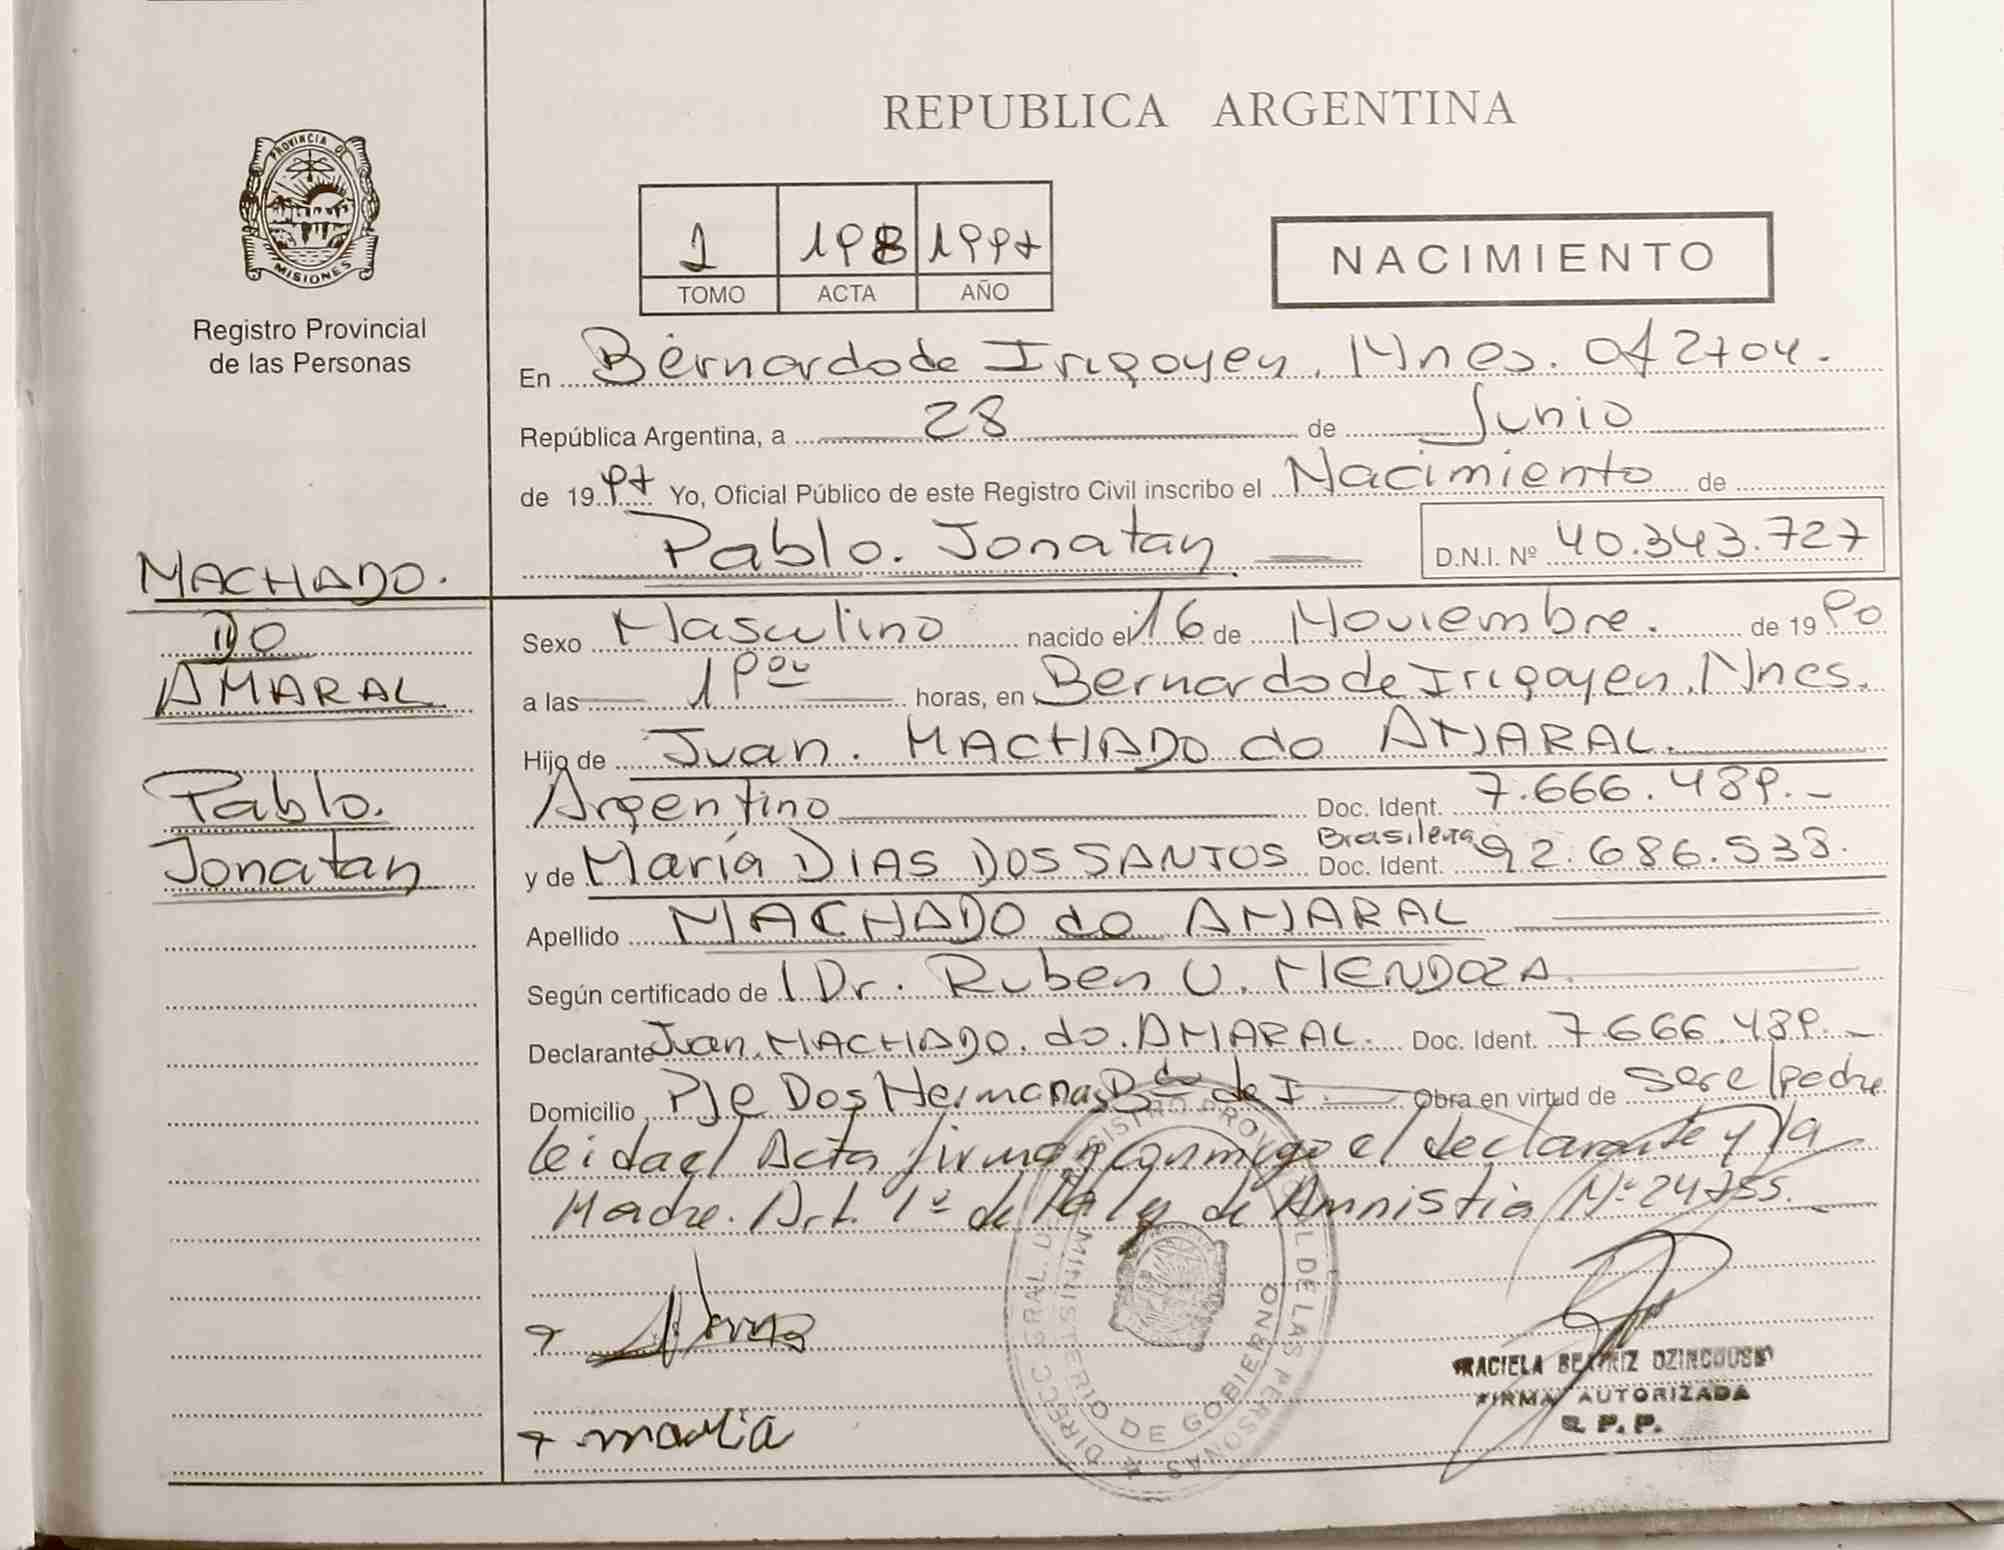 REPUBLICA ARGENTINA
PROVINCIA DE
MISIONES
Registro Provincial
de las Personas
1 198 1997
TOMO ACTA AÑO
NACIMIENTO
En Bernardo de Irigoyen, Mnes. Of 2704.
República Argentina, a 28 de Junio
de 1997 Yo, Oficial Público de este Registro Civil inscribo el Nacimiento de
Pablo. Jonatan D.N.I. Nº 40.343.727
MACHADO.
DO
AMARAL
Pablo.
Jonatan
Sexo Masculino nacido el 16 de Noviembre. de 1990
a las 19 horas, en Bernardo de Irigoyen, Mnes.
Hijo de Juan. MACHADO do AMARAL.
Argentino Doc. Ident. 7.666.489.-
y de María DIAS DOS SANTOS Brasilera Doc. Ident. 92.686.538.
Apellido MACHADO do AMARAL
Según certificado de l Dr. Ruben U. MENDOZA.
Declarante Juan. MACHADO. do. AMARAL. Doc. Ident. 7.666.489.-
Domicilio Pje Dos Hermanas Bdo de I. Obra en virtud de ser el padre
leida el Acta firman conmigo el declarante y la
Madre. Art. 1º de la ley de Amnistia Nº 24755.
DIRECC. GRAL. DEL REGISTRO PROVINCIAL DE LAS PERSONAS
MINISTERIO DE GOBIERNO
maria
GRACIELA BEATRIZ
FIRMA AUTORIZADA
R. P. P.